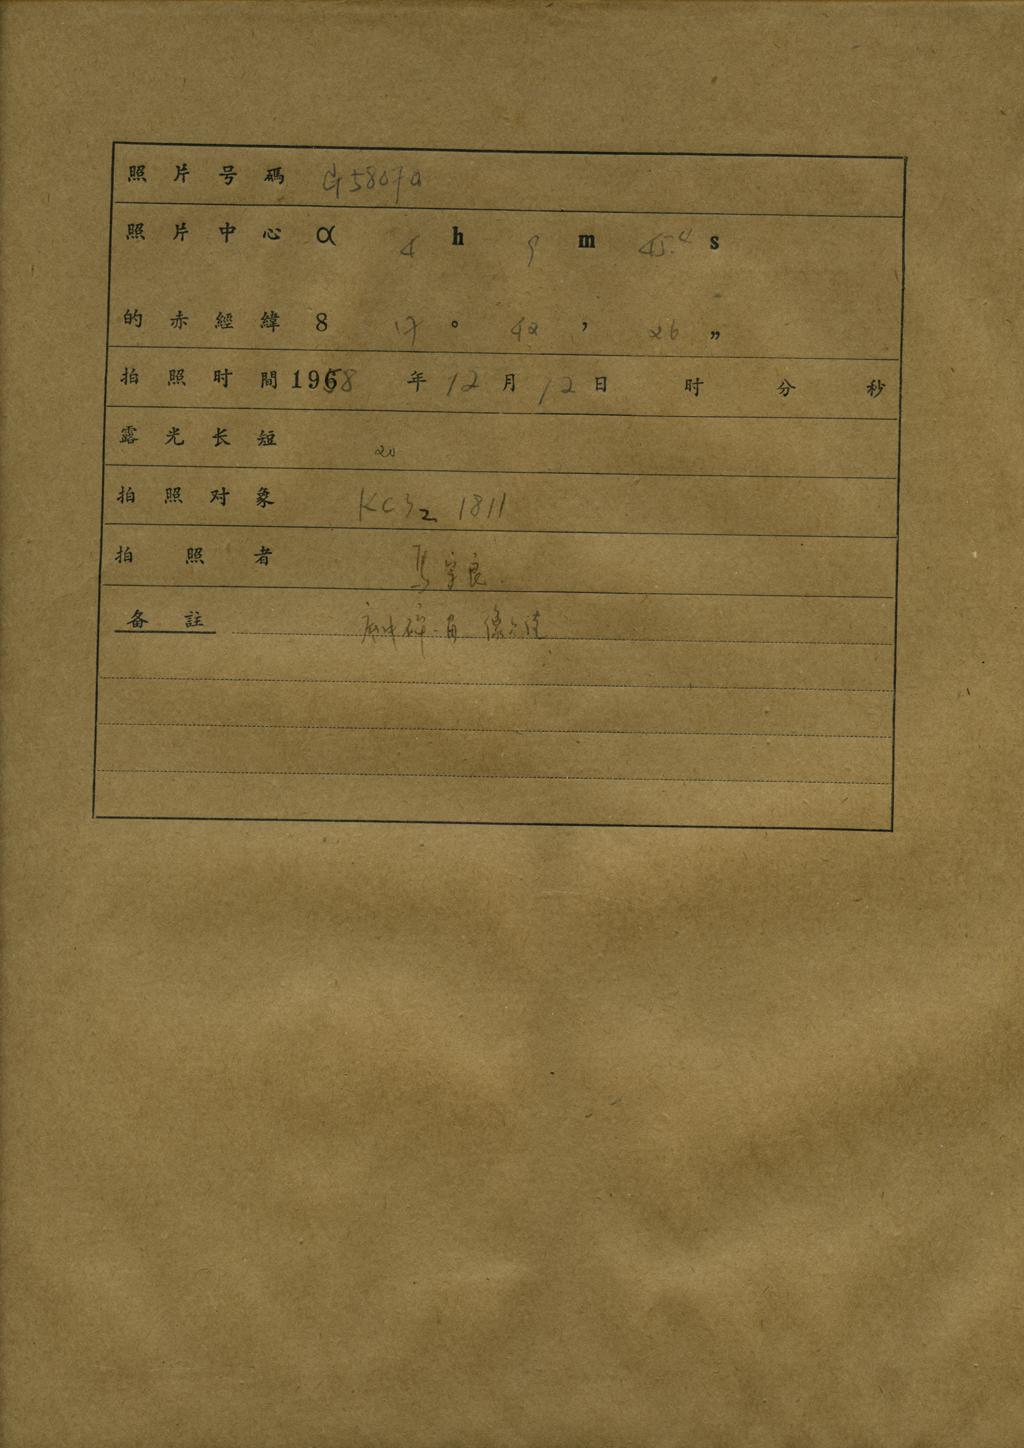 照片号碼 G58070
照片中心 α 4 h 9 m 45.4 s
的赤經緯 8 17 ° 42 ′ 26 ″
拍照时間 1958 年 12 月 12 日 时 分 秒
露光长短 20
拍照对象 1811
拍照者 馬宇良
备註